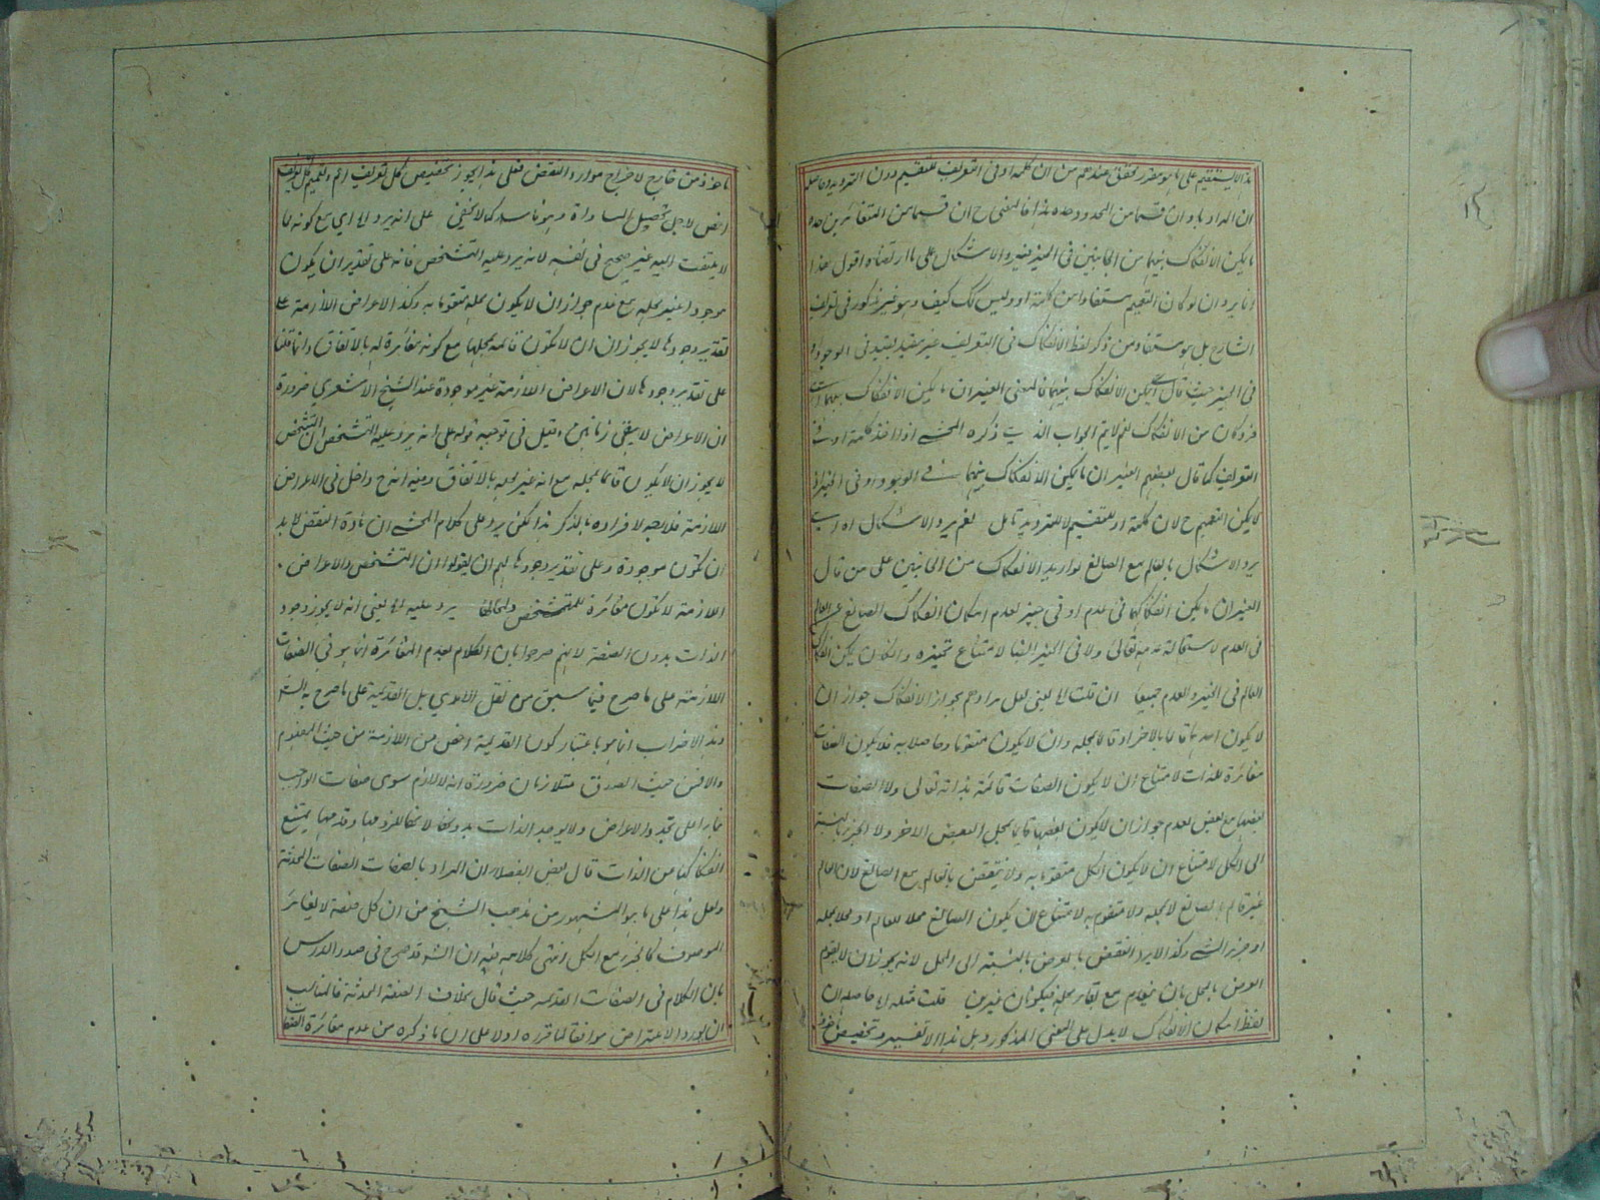 هذا لا يستقيم على ما هو مقرر محقق عندهم من ان كلمة او فى التعريف للتقسيم دون الترديد وحاصله
ان المراد ما وان قسما من المحدود وحده هذا فالمعنى ح ان قسما من المتغائرين حده
ما يمكن الانفكاك بينهما من الجانبين فى الحيز فيرد الاشكال على ما ارتضاه اقول هذا
انما يرد ان لو كان التعميم مستفادا من كلمة او وليس كك كيف وهو غير مذكور فى تعريف
الشارح بل هو مستفاد من ذكر لفظ الانفكاك فى التعريف غير مقيد بقيد فى الوجود او
فى الحيز حيث قال اى يمكن الانفكاك بينهما فالمعنى الغيران ما يمكن الانفكاك بينهما
فرد كان من الانفكاك نعم لا يتم الجواب الذى ذكره المحشى اذا اخذ كلمة او فى
التعريف كما قال بعضهم الغيران ما يمكن الانفكاك بينهما فى الوجود او فى الحيز اذ
لا يمكن التعميم ح لان كلمة او للتقسيم لا للترديد تأمل نعم يرد الاشكال اه اى
يرد الاشكال بالعالم مع الصانع لو اريد الانفكاك من الجانبين على من قال
الغيران ما يمكن انفكاكهما فى عدم او فى حيز لعدم امكان انفكاك الصانع عن العالم
فى العدم لاستحالة عدمه تعالى ولا فى الحيز ايضا لامتناع تحيزه وان كان يمكن انفكاك
العالم فى الحيز والعدم جميعا ان قلت اه يعنى لعل مرادهم بجواز الانفكاك جواز ان
لا يكون احدهما قائما بالاخر او قائما بمحله وان لا يكون متقوما وحاصلا به فلا يكون الصفات
مغائرة للذات لامتناع ان لا يكون الصفات قائمة بذاته تعالى ولا الصفات
بعضها مع بعض لعدم جواز ان لا يكون بعضها قائما بمحل البعض الاخر ولا الجزء بالنسبة
الى الكل لامتناع ان لا يكون الكل متقوما به ولا ينتقض بالعالم مع الصانع لان العالم
غير قائم بالصانع لا بمحله ولا متقوم به لامتناع ان يكون الصانع محلا للعالم او محلا بمحله
او جزء الشئ وكذا لا يرد النقض بالعرض بالنسبة الى المحل لانه يجوز ان لا يقوم
العرض بالمحل بان ينعدم مع بقاء محله فيكونان غيرين قلت مثله اه حاصله ان
لفظ امكان الانفكاك لا يدل على المعنى المذكور وهل هذا الا تفسير وتخصيص ماخوذ
ماخوذ من خارج لاخراج موارد النقض فعلى هذا يجوز تخصيص كل تعريف اعم وتعميم كل تعريف
اخص لاجل تحصيل المساواة وهو فاسد كما لا يخفى على انه يرد اه اى مع كونه مما
لا يلتفت اليه غير صحيح فى نفسه لانه يرد عليه التشخص فانه على تقدير ان يكون
موجودا غير محله مع عدم جواز ان لا يكون محله متقوما به وكذا الاعراض اللازمة على
تقدير وجودها لا يجوز ان لا تكون قائمة بمحلها مع كونه مغائرة له بالاتفاق وانما قلنا
على تقدير وجودها لان الاعراض اللازمة غير موجودة عند الشيخ الاشعري ضرورة
ان الاعراض لا يبقى زمانين وقيل فى توجيه قوله على انه يرد عليه التشخص ان التشخص
لا يجوز ان لا يكون قائما بمحله مع انه غير محله بالاتفاق وفيه انه ح داخل فى الاعراض
اللازمة فلا وجه لافراده بالذكر هذا لكن يرد على كلام المحشى ان مادة النقض لا بد
ان تكون موجودة وعلى تقدير وجودها لهم ان يقولوا ان التشخص والاعراض
اللازمة لا تكون مغائرة للمتشخص ولمحالها يرد عليه اه يعنى انه لا يجوز وجود
الذات بدون الصفة لانهم صرحوا بان الكلام لعدم المغائرة انما هو فى الصفات
اللازمة على ما صرح فيما سبق من نقل الامدي بل القديمة على ما صرح به الش
وهذا الاضراب انما هو باعتبار كون القديمة اخص من اللازمة من حيث المفهوم
والا فمن حيث الصدق متلازمان ضرورة انه لا لازم سوى صفات الواجب
بناء على تجدد الاعراض ولا يوجد الذات بدونها لانها للزومها وقدمها يمتنع
انفكاكها من الذات قال بعض الفضلاء ان المراد بالصفات الصفات المحدثة
ولعل هذا على ما هو المشهور من مذهب الشيخ من ان كل صفة لا يغائر
الموصوف كالجزء مع الكل انتهى كلامه فيه ان الش قد صرح فى صدر الدرس
بان الكلام فى الصفات القديمة حيث قال بخلاف الصفة المحدثة فالمناسب
ان يورد الاعتراض موافقا لما قرره اولا على ان ما ذكره من عدم مغائرة الصفات